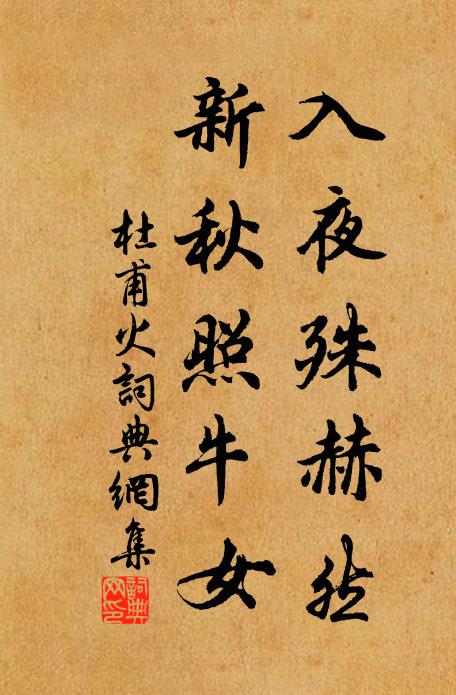 入夜殊赫然
新秋照牛女
杜甫火詞典網集
詞典網印